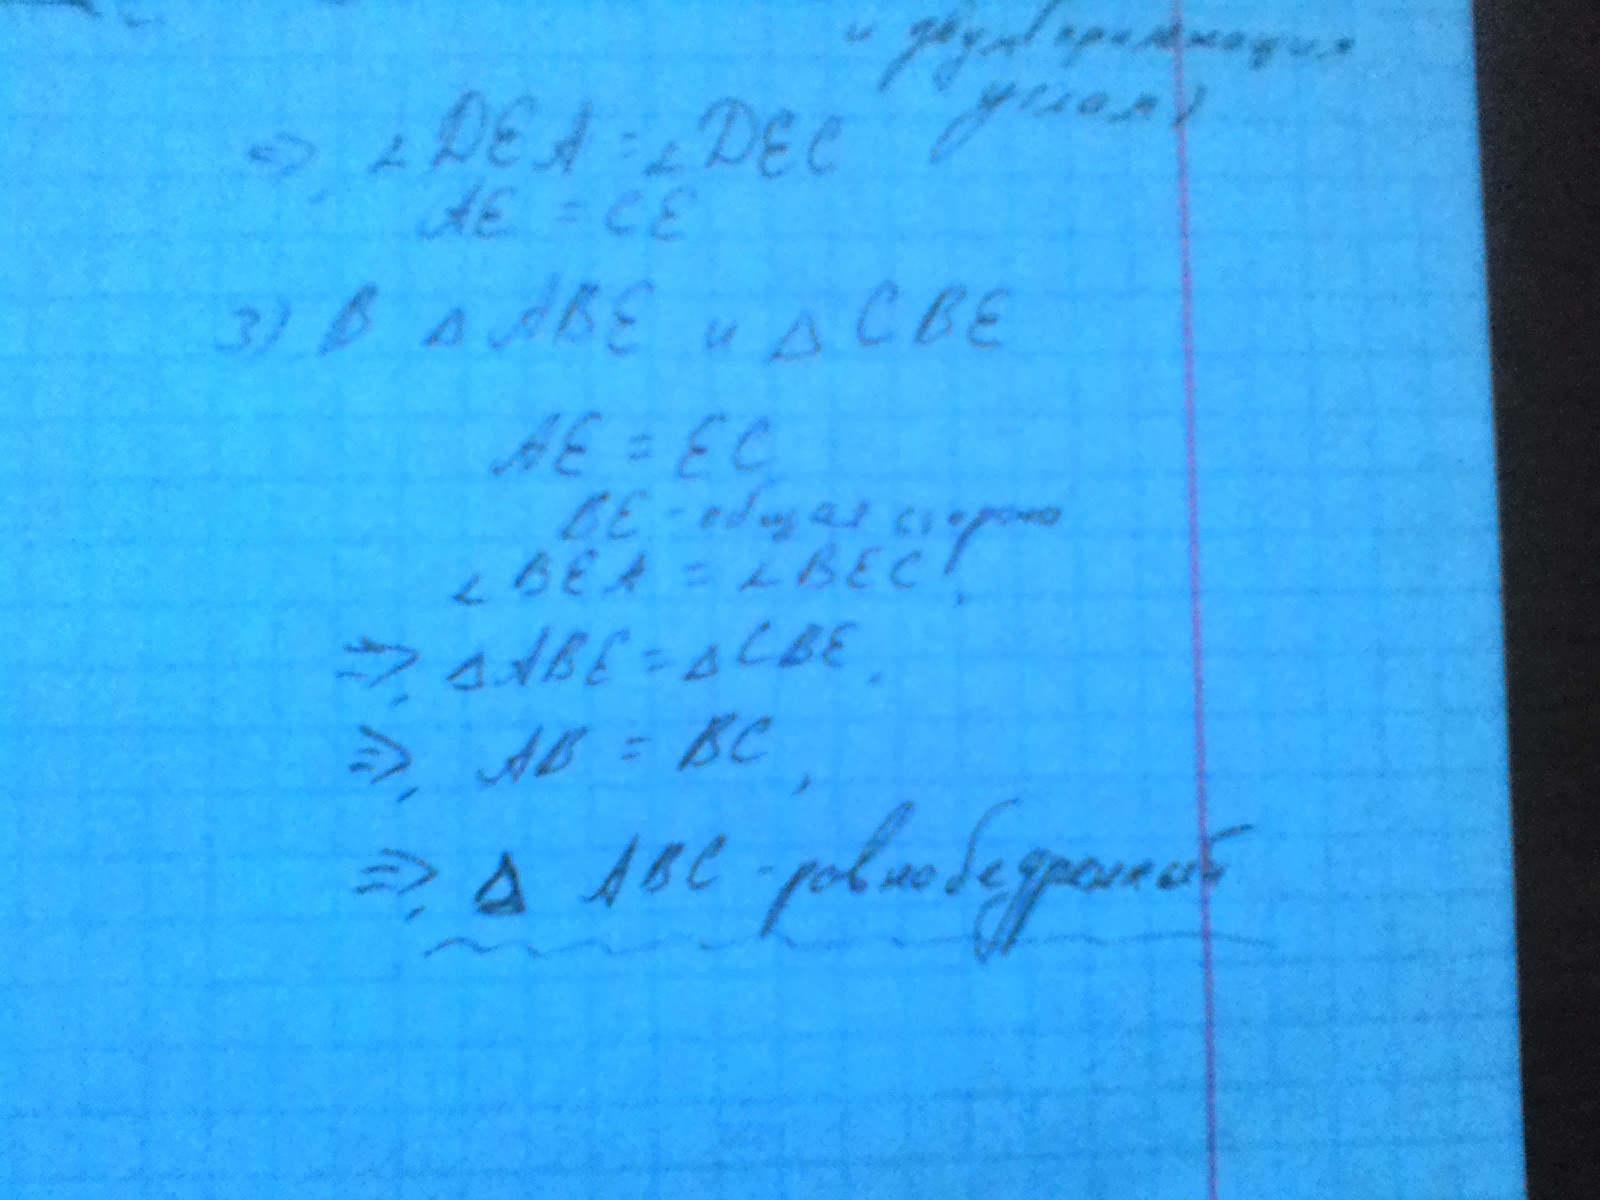 и двум прилежащим
углам)
=> ∠DEA = ∠DEC
AE = CE
3) В △ABE и △CBE
AE = EC
BE - общая сторона
∠BEA = ∠BEC
=> △ABE = △CBE.
=> AB = BC,
=> △ ABC - равнобедренный